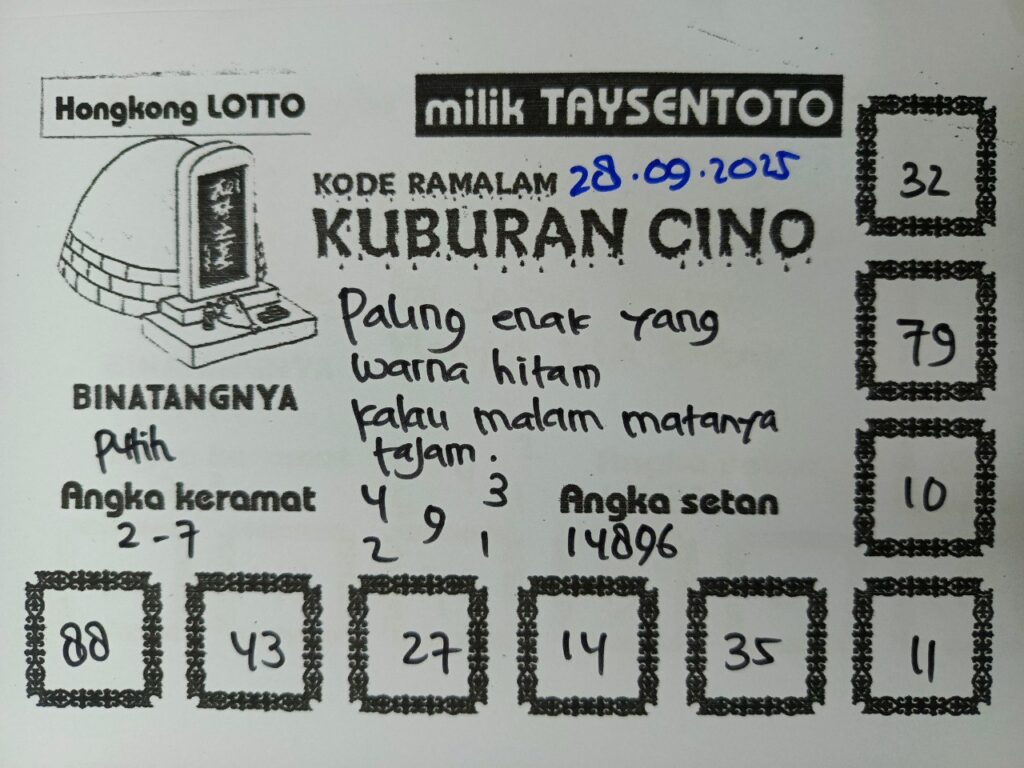 Hongkong LOTTO
milik TAYSENTOTO
KODE RAMALAM 28.09.2025
KUBURAN CINO
Paling enak yang
warna hitam
kalau malam matanya
tajam.
BINATANGNYA
Putih
Angka keramat
2-7
4 3
9
2 1
Angka setan
14896
32
79
10
88 43 27 14 35 11